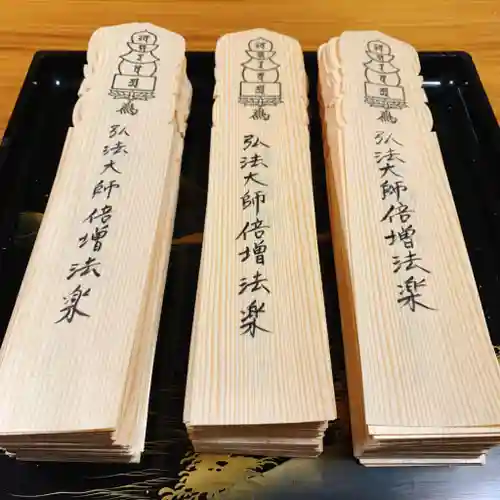 為弘法大師倍増法楽
為弘法大師倍増法楽
為弘法大師倍増法楽